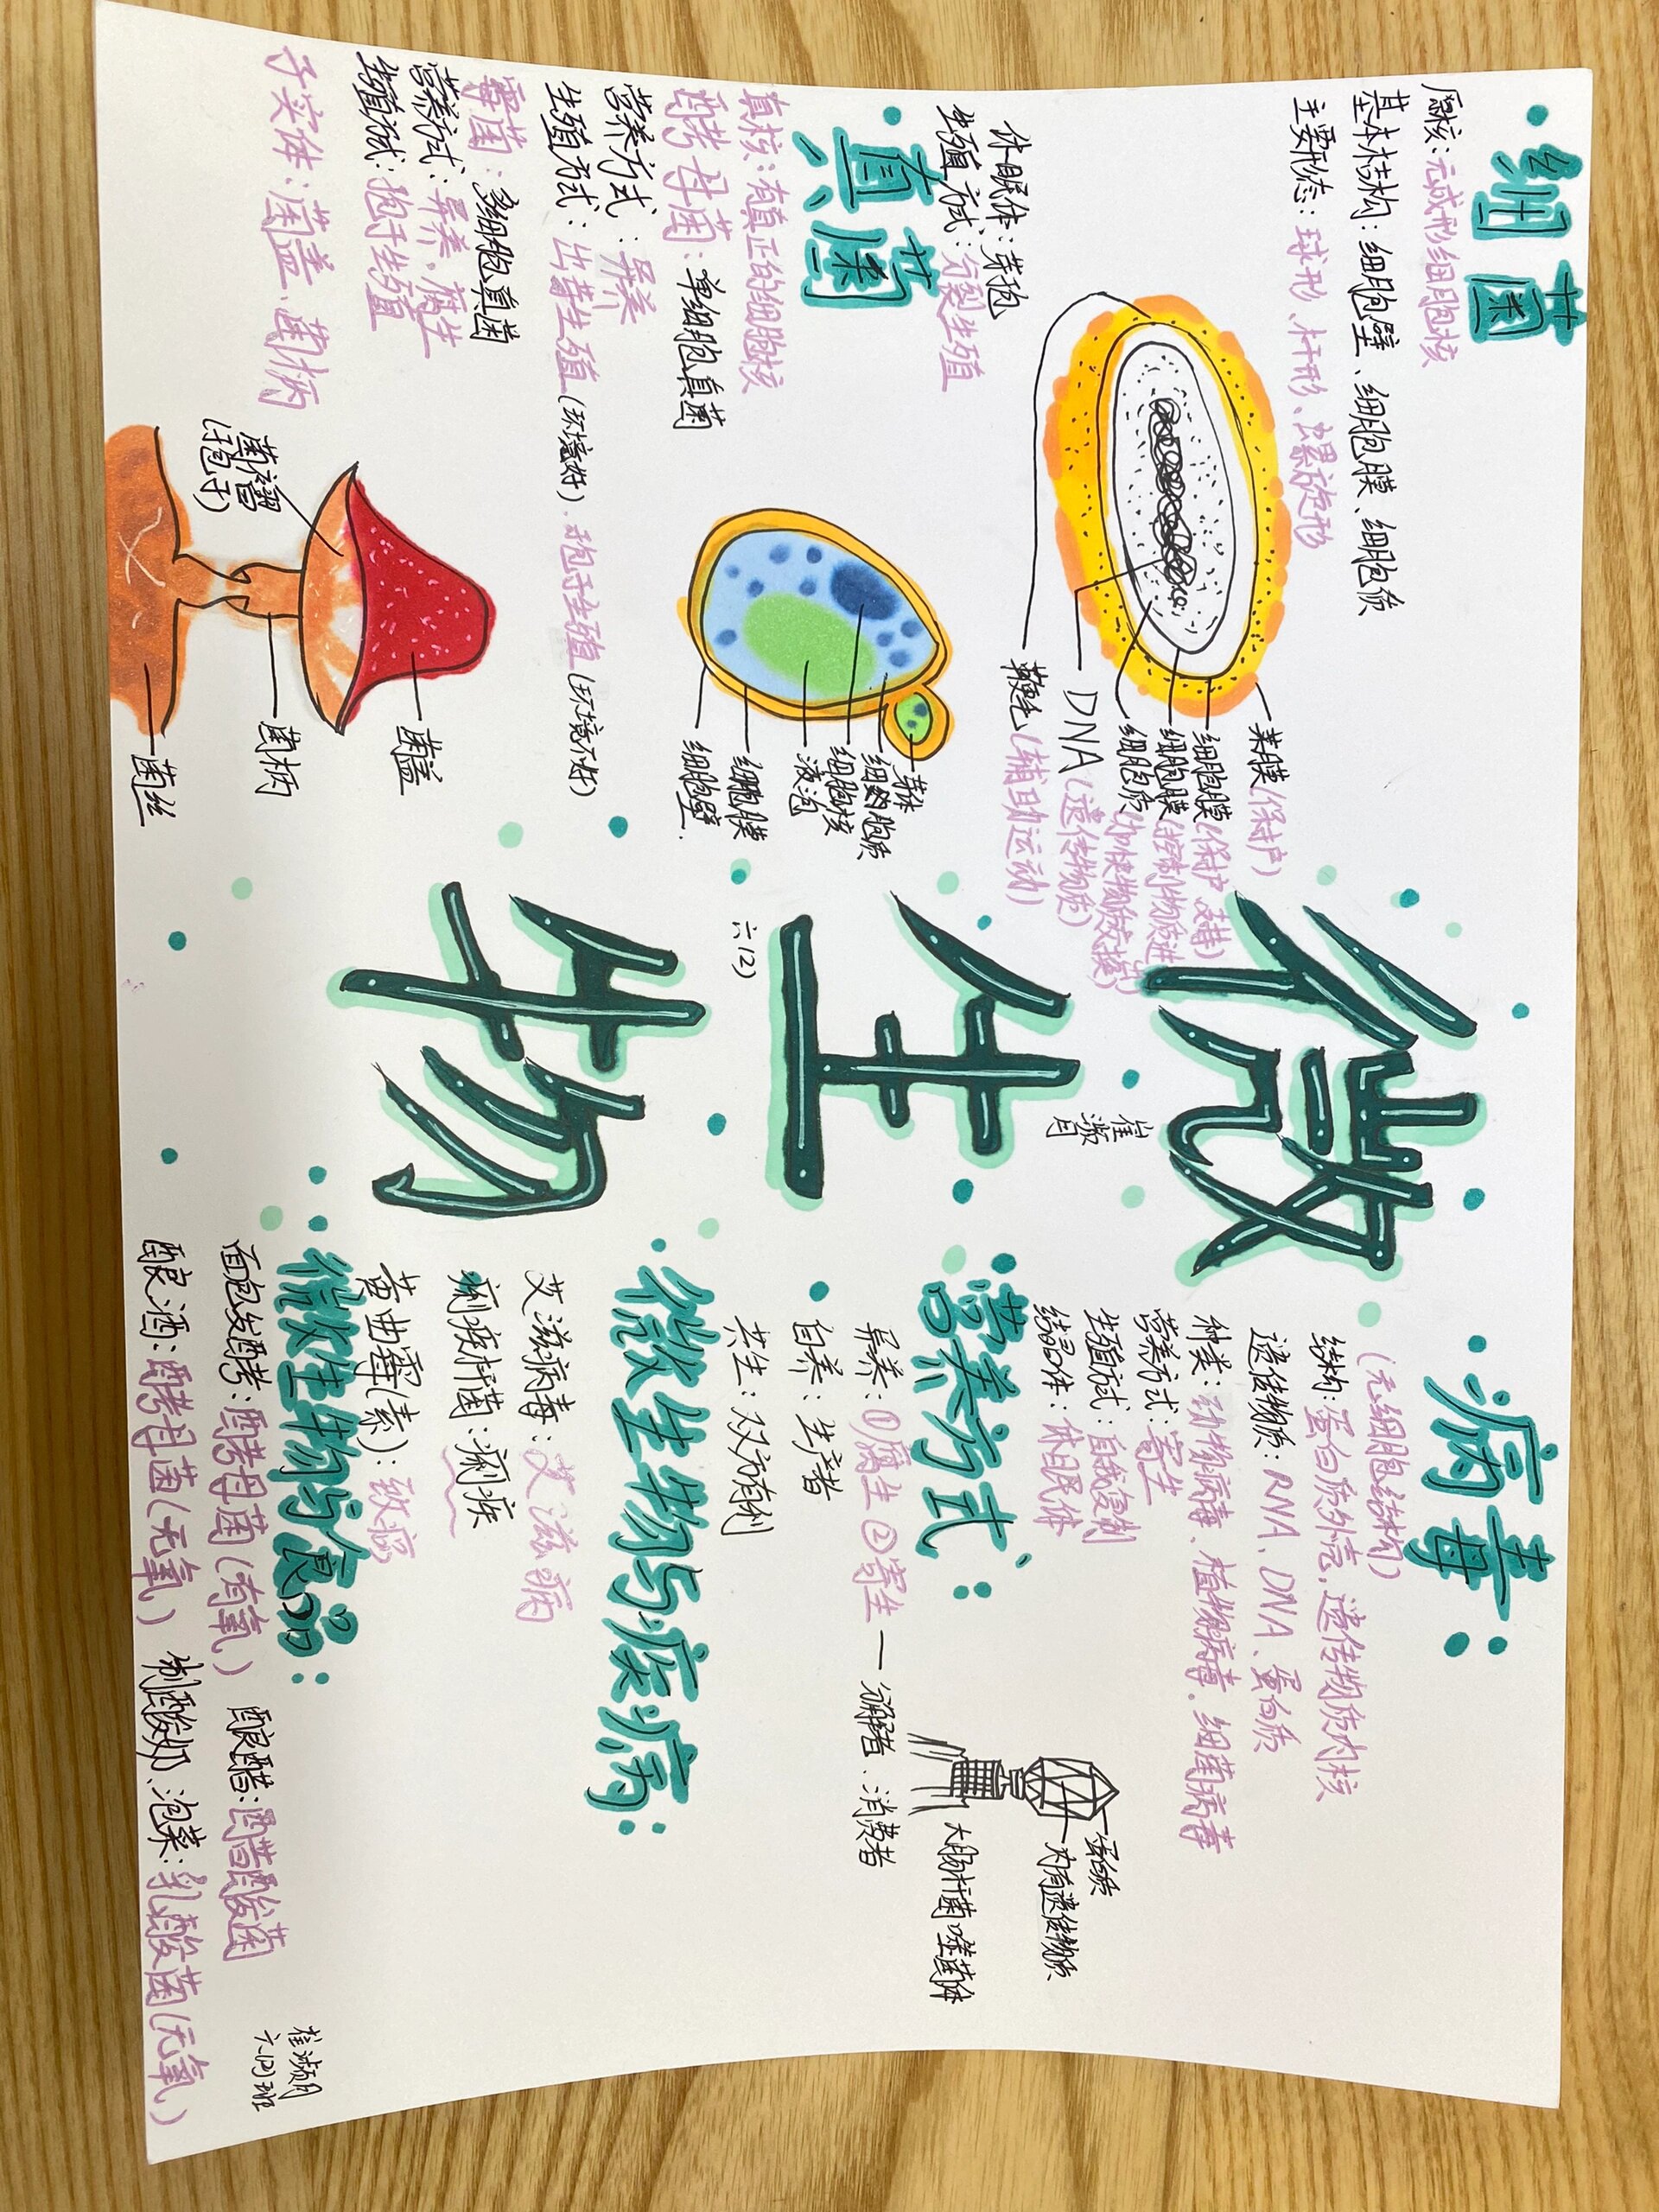 细菌
原核：无成形细胞核
基本结构：细胞壁、细胞膜、细胞质
主要形态：球形、杆形、螺旋形
荚膜(保护)
细胞膜(保护、支持)
细胞膜(控制物质进
细胞质(加快物质交换)
DNA(遗传物质)
鞭毛(辅助运动)
休眠体：芽孢
生殖方式：分裂生殖
真菌
真核：有真正的细胞核
酵母菌：单细胞真菌
营养方式：异养
生殖方式：出芽生殖(环境好)、孢子生殖(环境不好)
芽体
细胞质
细胞核
液泡
细胞膜
细胞壁
霉菌：多细胞真菌
营养方式：异养、腐生
生殖方式：孢子生殖
子实体：菌盖、菌柄
菌褶
(孢子)
菌盖
菌柄
菌丝
微生物
崔灏月
六(2)
病毒：
(无细胞结构)
结构：蛋白质外壳，遗传物质内核
遗传物质：RNA、DNA、蛋白质
种类：动物病毒、植物病毒、细菌病毒
营养方式：寄生
生殖方式：自我复制
结晶体：休眠体
蛋白质
内有遗传物质
大肠杆菌噬菌体
营养方式：
异养：①腐生 ②寄生 — 分解者、消费者
自养：生产者
共生：双方有利
微生物与疾病：
艾滋病毒：艾滋病
痢疾杆菌：痢疾
黄曲霉(素)：致癌
微生物与食品：
面包发酵：酵母菌(有氧) 酿醋：醋酸菌
酿酒：酵母菌(无氧) 制酸奶、泡菜：乳酸菌(无氧)
六(2)班